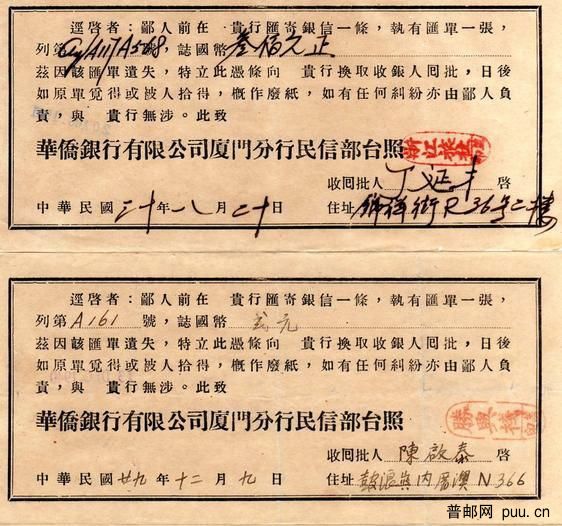 逕啓者：鄙人前在 貴行匯寄銀信一條，執有匯單一張，
列第 A117A568 號，誌國幣 叁佰元正
茲因該匯單遺失，特立此憑條向 貴行換取收銀人囘批，日後
如原單覓得或被人拾得，概作廢紙，如有任何糾紛亦由鄙人負
責，與 貴行無涉。此致
華僑銀行有限公司厦門分行民信部台照
收囘批人 丁延 啓
中華民國 三十 年 八 月 二十 日 住址 街 36 二樓
逕啓者：鄙人前在 貴行匯寄銀信一條，執有匯單一張，
列第 A161 號，誌國幣 弍元
茲因該匯單遺失，特立此憑條向 貴行換取收銀人囘批，日後
如原單覓得或被人拾得，概作廢紙，如有任何糾紛亦由鄙人負
責，與 貴行無涉。此致
華僑銀行有限公司厦門分行民信部台照
收囘批人 陳啟泰 啓
中華民國 廿九 年 十二 月 九 日 住址 鼓浪與內厝澳 N366
普邮网 puu.cn